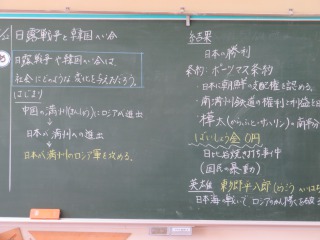 日露戦争と韓国へ合
日露戦争や韓国へ合は、
社会にどのような変化を与えただろう。
はじまり
中国の満州(まんしゅう)にロシアが進出
日本が満州への進出
日本が満州のロシア軍を攻める。
結果
日本の勝利
条約:ポーツマス条約
・日本に朝鮮の支配権を認める。
・南満州鉄道の権利と
樺太(からふと・サハリン)の南半分
ばいしょう金 0円
日比谷焼き打ち事件
(国民の暴動)
英雄 東郷平八郎(とうごう
日本海の戦いでロシアのかん隊を